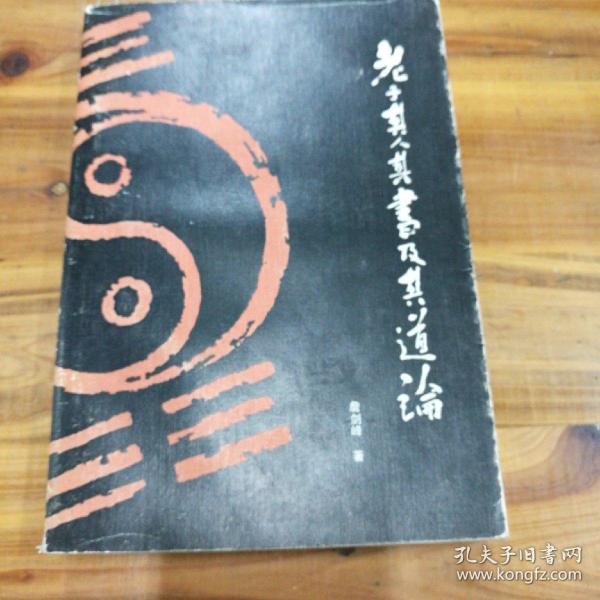 老子其人其書及其道論
詹剑峰 著
孔夫子旧書网
www.kongfz.com